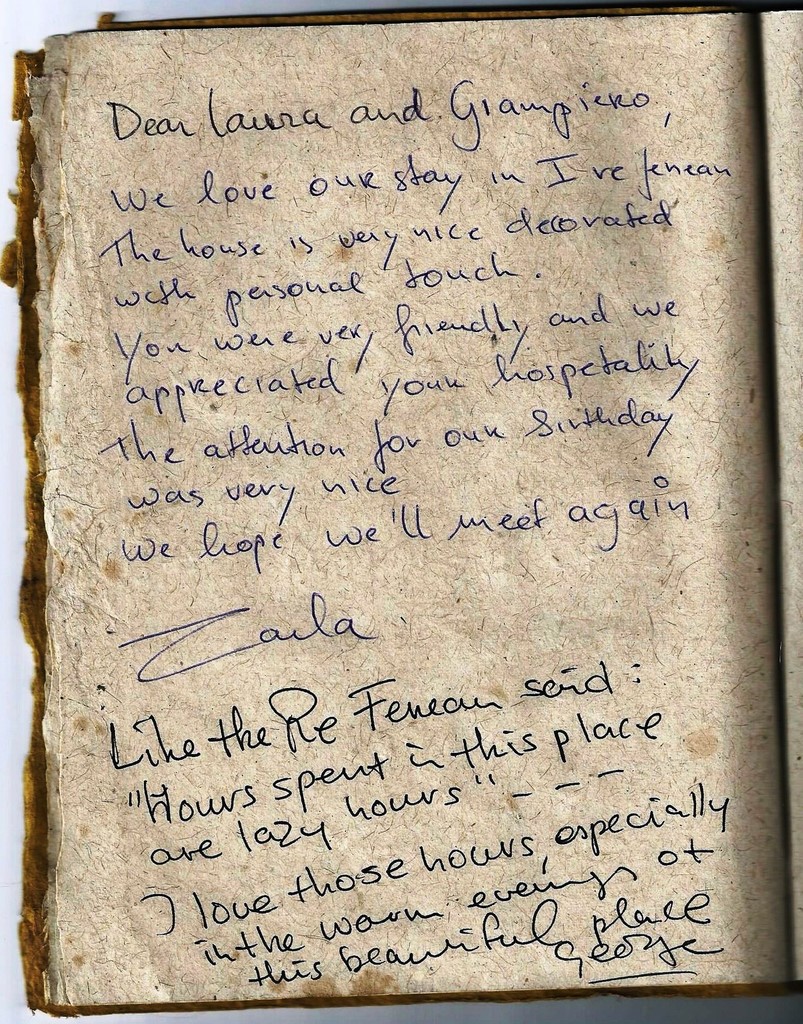 Dear Laura and Giampiero,
We love our stay in I re fenean
The house is very nice decorated
with personal touch.
You were very friendly and we
appreciated your hospetality
The attention for our Birthday
was very nice
We hope we'll meet again
Like the Re Fenean said:
"Hours spent in this place
are lazy hours" - - - -
I love those hours, especially
in the warm evenings of
this beautiful place
George